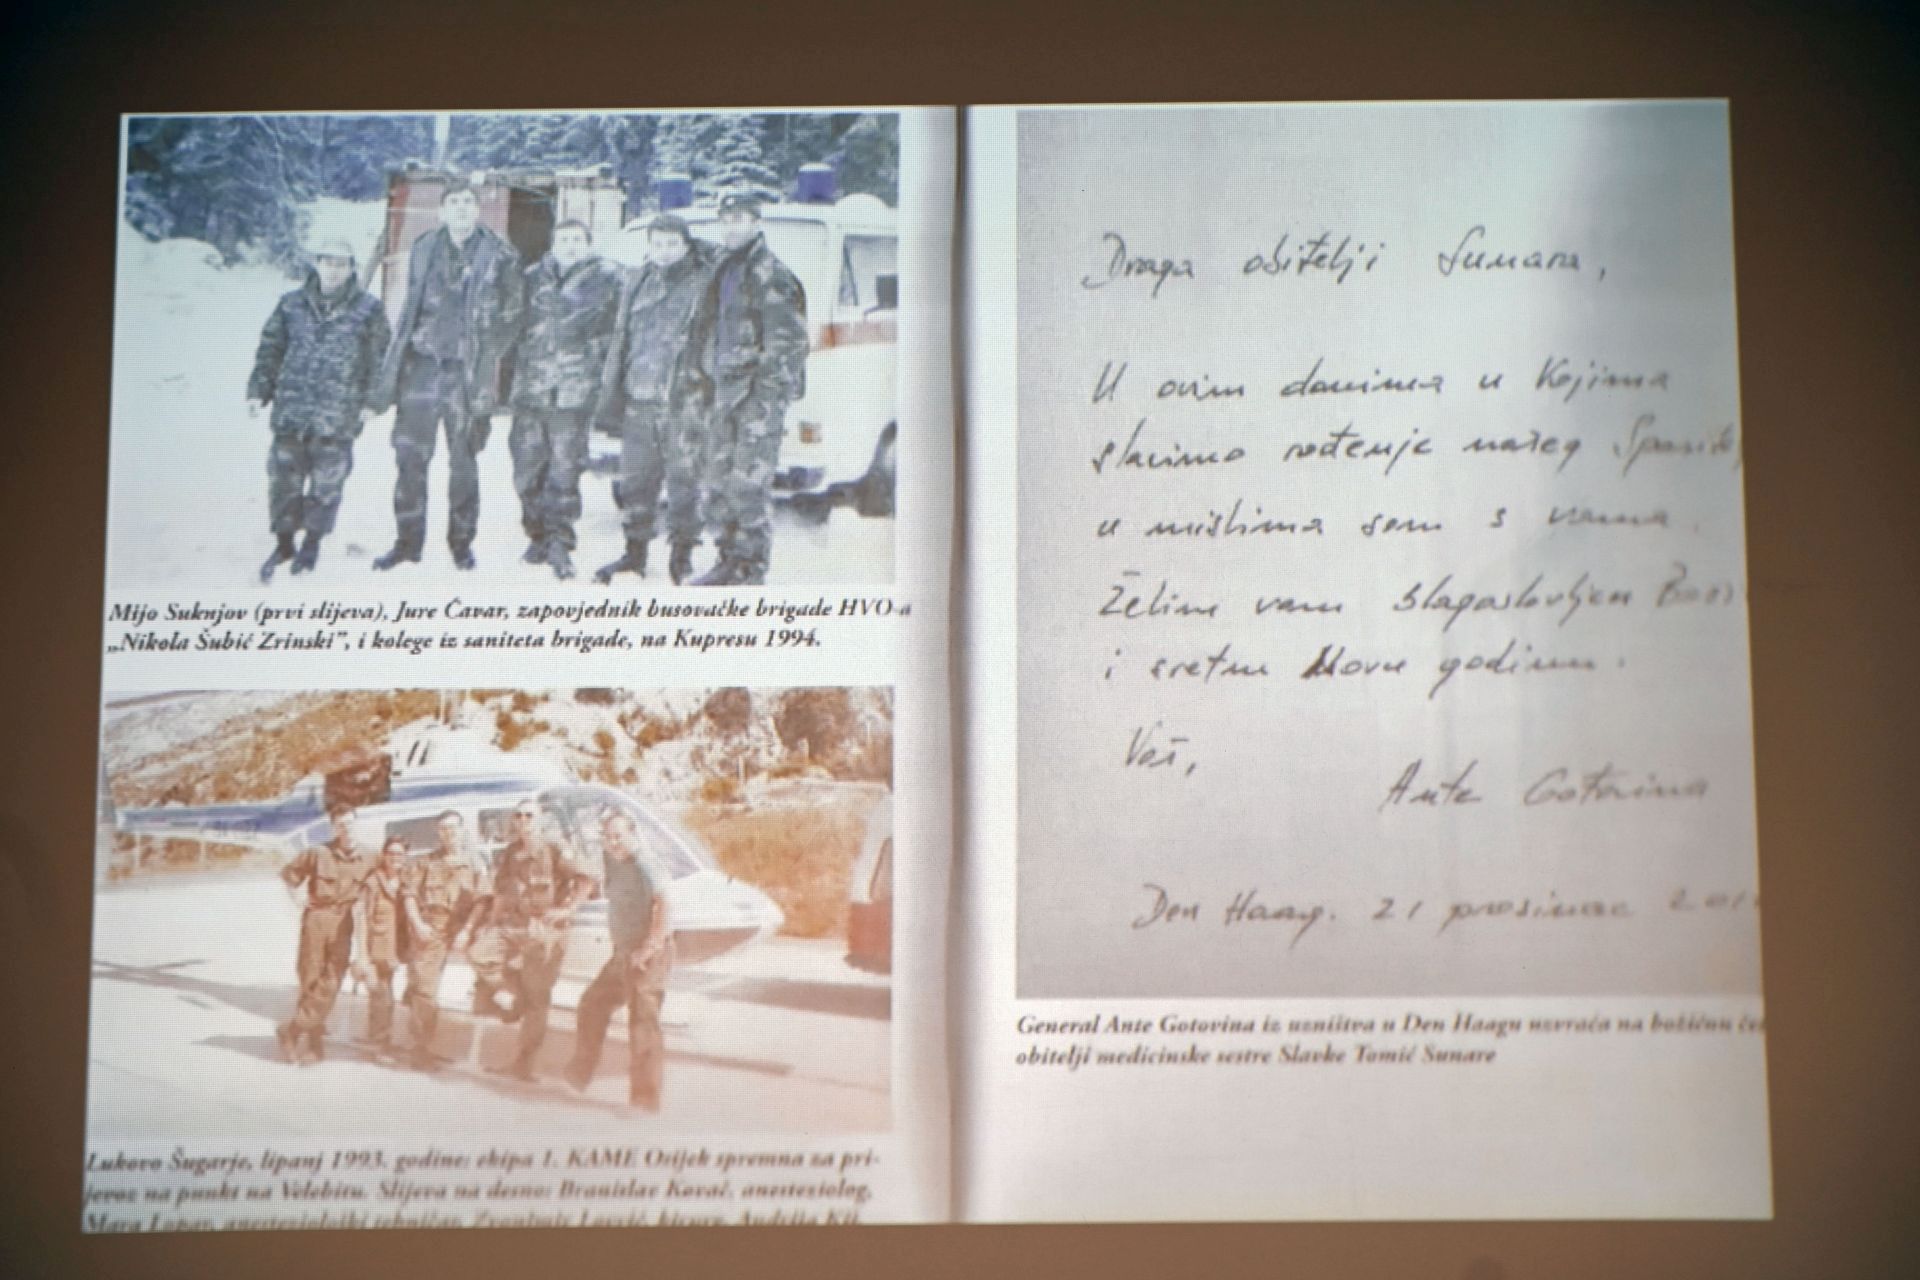 Mijo Suknjov (prvi slijeva), Jure Čavar, zapovjednik busovačke brigade HVO-a
„Nikola Šubić Zrinski”, i kolege iz saniteta brigade, na Kupresu 1994.
Lukovo Šugarje, lipanj 1993. godine: ekipa 1. KAME Osijek spremna za pri-
jevoz na punkt na Velebitu. Slijeva na desno: Branislav Kovač, anesteziolog,
Mara Lopar, anesteziološki tehničar, Zvonimir
Draga obitelji Sunara,
U ovim danima u kojima
slavimo rođenje našeg
u mislima sam s vama.
Želim vam blagoslovljen
i sretnu Novu godinu.
Vaš,
Ante Gotovina
Den Haag. 21 prosinac
General Ante Gotovina iz uzništva u Den Haagu uzvraća na božićnu
obitelji medicinske sestre Slavke Tomić Sunare